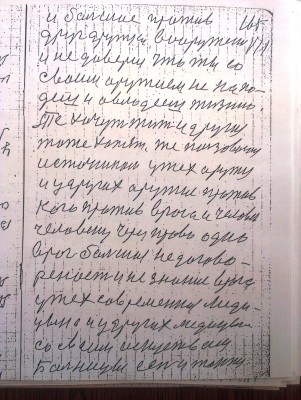 и большие против
друг друга вооружены
и не доверя это ты со
своим оружием не нахо-
дещ и овладеет жизнь
Те хочут жит и другия
тоже хотят. же
источником у тех оружи
и у других оружие против
кого против врога и человек
человеку через право одно
врог большия недогово-
реност и не знание врога
у тех современная меди-
цына и у других медицын
со своим искуством
Больницы сен и